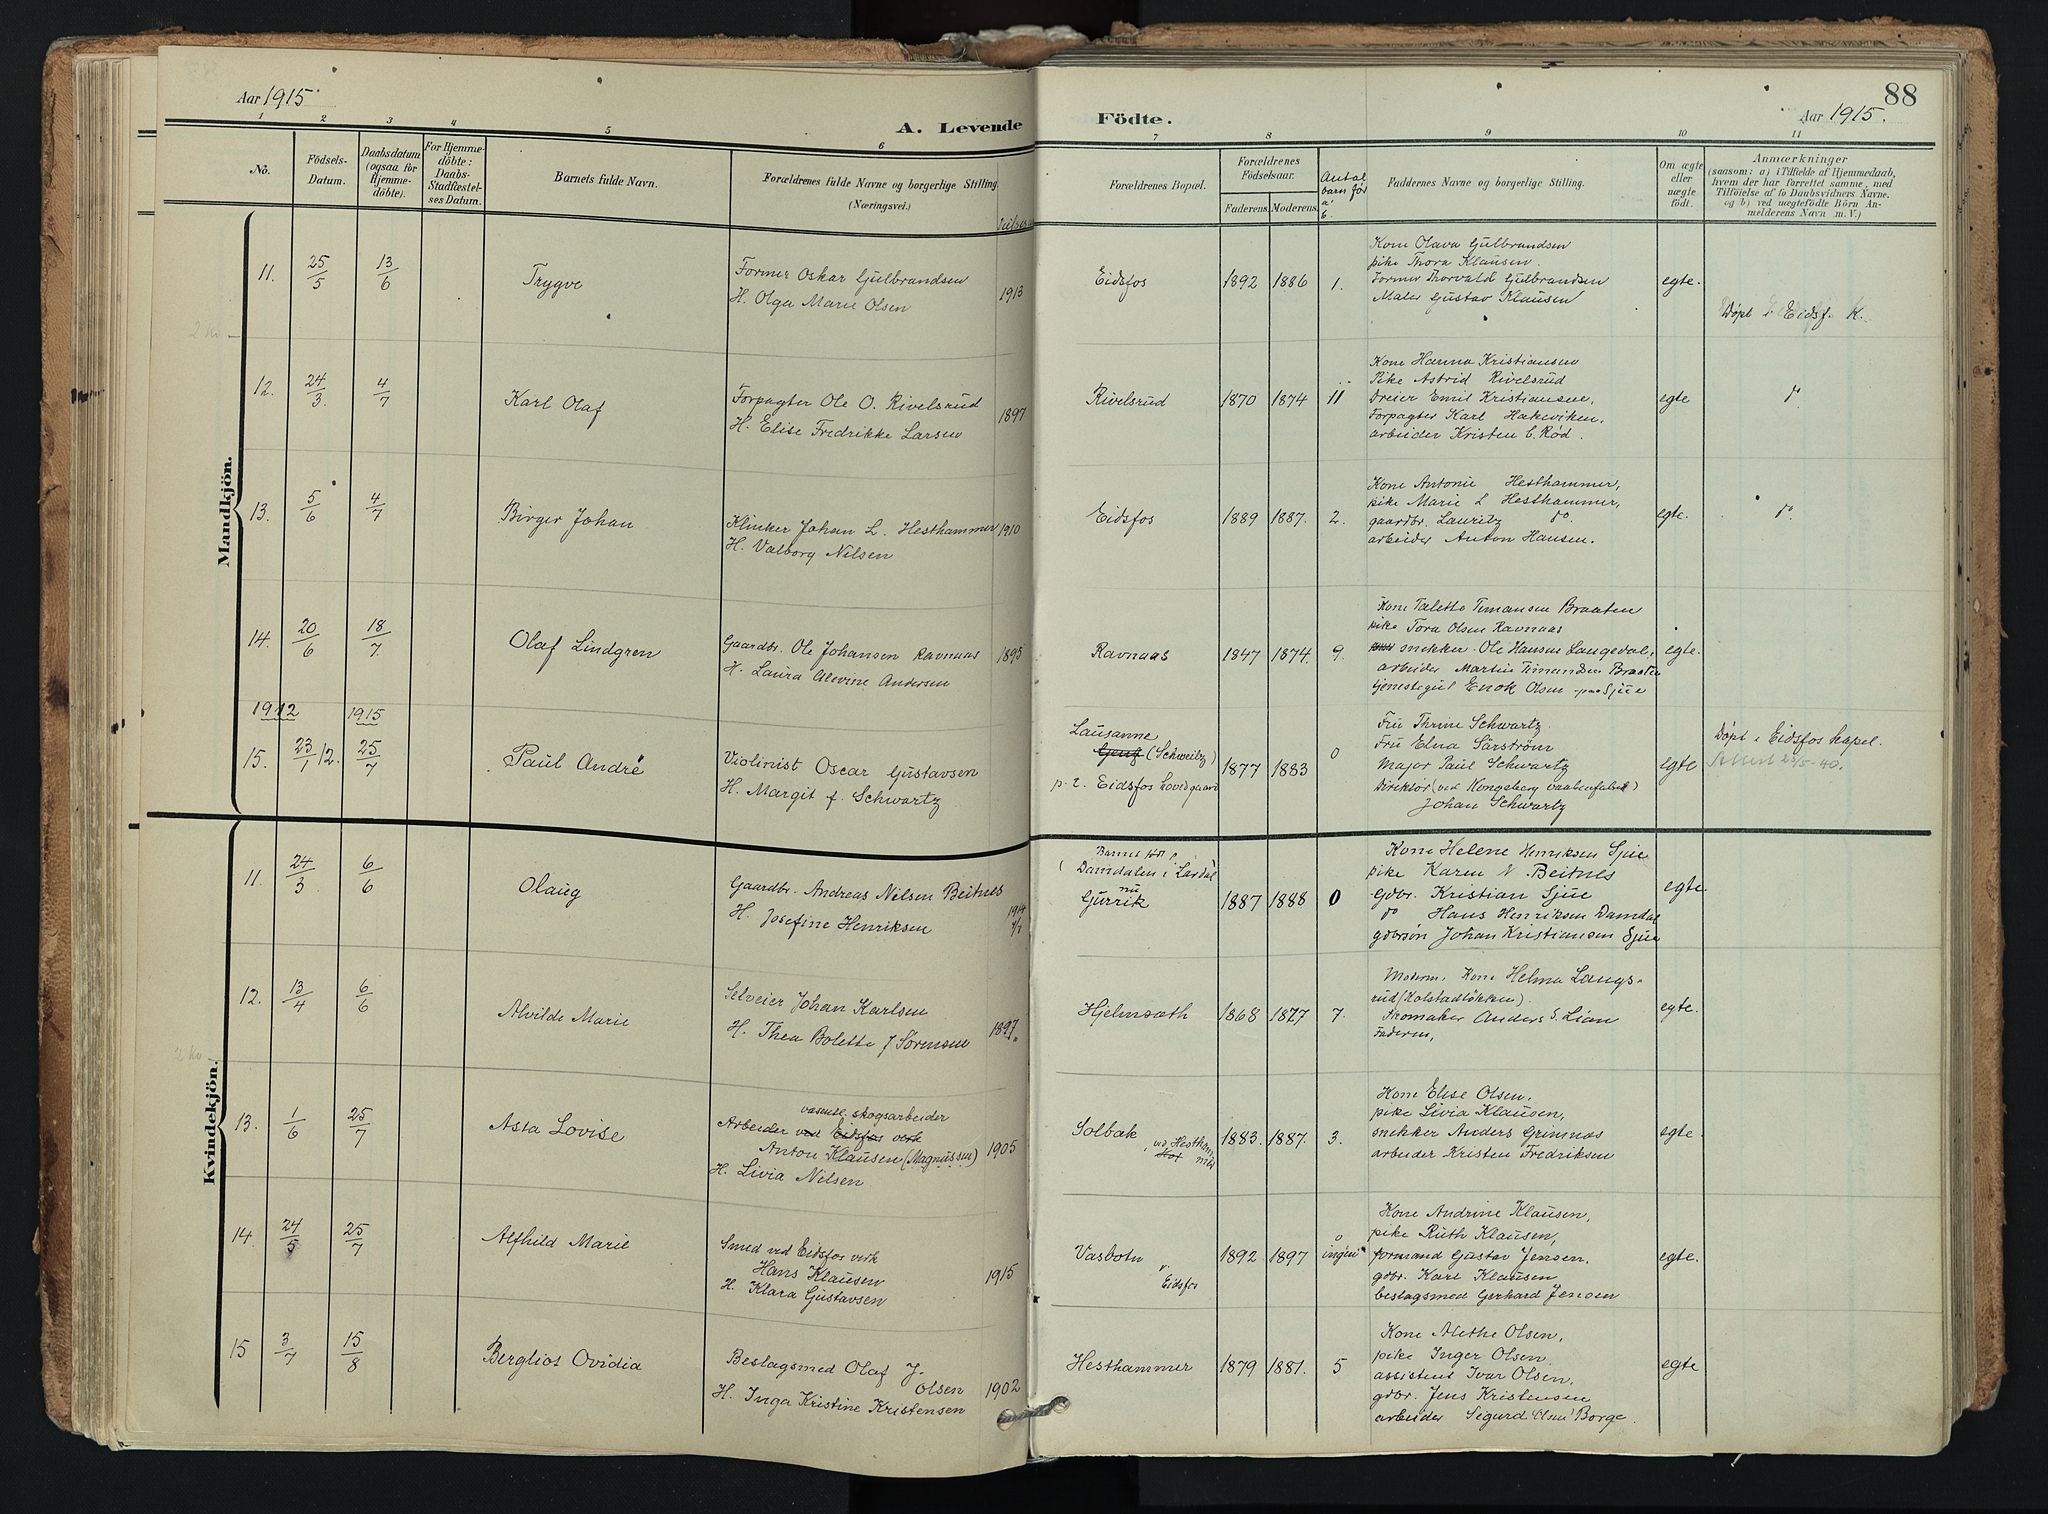 88
Aar 1915.
Aar 1915.
A. Levende
Födte.
1 2 3 4 5 6
7 8 9 10 11
No.
Födsels-
Datum.
Daabsdatum
(ogsaa for
Hjemme-
döbte).
For Hjemme-
döbte:
Daabs-
Stadfæstel-
ses Datum.
Barnets fulde Navn.
Forældrenes fulde Navne og borgerlige Stilling.
(Næringsvei.)
Forældrenes Bopæl.
Forældrenes
Födselsaar.
Faderens. Moderens.
Antal
barn før
Faddernes Navne og borgerlige Stilling.
Om ægte
eller
uægte
födt.
Anmærkninger
(saasom: a) i Tilfælde af Hjemmedaab,
hvem der har forrettet samme, med
Tilföielse af to Daabsvidners Navne,
og b) ved uægtefödte Börn An-
melderens Navn m. V.)
Mandkjön.
11. 25/5 13/6 Trygve
Former Oskar Gulbrandsen
H. Olga Marie Olsen
1913
Eidsfos 1892 1886 1.
Kone Olava Gulbrandsen
pike Thora Klausen.
Former Thorvald Gulbrandsen
Maler Gustav Klausen
egte.
Døpt i Eidsf. K.
2 Kv
12. 24/3 4/7 Karl Olaf
Forpagter Ole O. Rivelsrud
H. Elise Fredrikke Larsen
1897
Rivelsrud 1870 1874 11
Kone Hanna Kristiansen
Pike Astrid Rivelsrud
Dreier Emil Kristiansen,
Forpagter Karl Hakeviken.
arbeider Kristen C. Rød.
egte
do.
13. 5/6 4/7 Birger Johan
Klinker Johan L. Hesthammer
H. Valborg Nilsen
1910
Eidsfos 1889 1887. 2.
Kone Antonie Hesthammer,
pike Marie L Hesthammer,
gaardbr. Lauritz do.
arbeider Anton Hansen.
egte.
do.
14. 20/6 18/7 Olaf Lindgren
Gaardbr. Ole Johansen Ravnaas
H. Laura Alevine Andersen
1895
Ravnaas 1847 1874. 9.
Kone Talette Timansen Braaten
pike Tora Olsen Ravnaas
snekker Ole Hansen Langedal,
arbeider Martin Timandsen Braaten
tjenestegut Enok Olsen Sjue
egte.
1912 1915
15. 23/1 12. 25/7 Paul André
Violinist Oscar Gustavsen
H. Margit f. Schwartz
Lausanne
Genf (Schweitz)
p. t. Eidsfos hovedgaard
1877 1883 0
Fru Thrine Schwartz
Fru Elna Särström
Major Paul Schwartz
Direktør (ved Kongsberg vaabenfabrik)
Johan Schwartz
egte
Døpt i Eidsfos kapel.
Kvindekjön.
11. 24/3 6/6 Olaug
Gaardbr. Andreas Nilsen Beitnes
H. Josefine Henriksen
1914
Barnet født i
Damdalen i Lardal
nu
Gurrik
1887 1888 0
Kone Helene Henriksen Sjue
pike Karen N Beitnes
Gdbr. Kristian Sjue
do Hans Henriksen Damdal
gdbrsøn Johan Kristiansen Sjue
egte.
12. 13/4 6/6 Alvilde Marie
Selveier Johan Karlsen
H. Thea Bolette J Sørensen
1897.
Hjelmsæth 1868 1877 7.
Moderen, Kone Helma Langs-
rud (Kolstadløkken).
Skomaker Anders S. Lian
Faderen,
egte.
2 Kv
13. 1/6 25/7 Asta Lovise
væsentl. skogsarbeider
Arbeider ved Eidsfos verk
Anton Klausen (Magnussen)
H. Livia Nilsen
1905
Solbak, ved Hestham
mer
1883. 1887. 3.
Kone Elise Olsen,
pike Livia Klausen,
snekker Anders Grimnes
arbeider Kristen Fredriksen
egte.
14. 24/5 25/7 Alfhild Marie
Smed ved Eidsfos verk
Hans Klausen
H. Klara Gustavsen
1915
Vasbotn
v. Eidsfos
1892 1897 0
ingen
Kone Andrine Klausen,
pike Ruth Klausen,
formand Gustav Jensen,
gdbr. Karl Klausen
beslagsmed Gerhard Jensen
egte.
15 3/7 15/8 Bergliot Ovidia
Beslagsmed Olaf J.
Olsen
H. Inga Kristine Kristensen
1902
Hesthammer 1879 1881. 5
Kone Alethe Olsen,
pike Inger Olsen
assistent Ivar Olsen,
gdbr. Jens Kristensen
arbeider Sigurd Borge.
egte